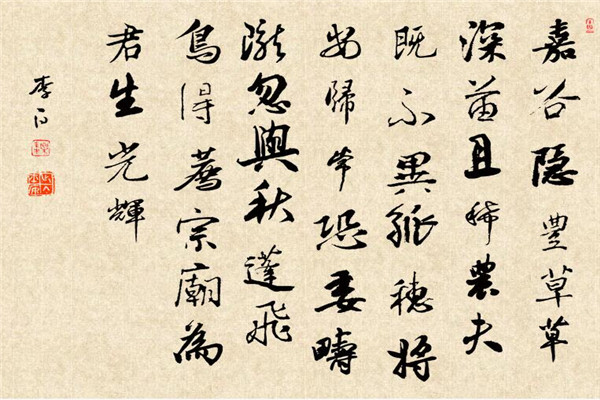 嘉谷隐豐草草
深苗且稀農夫
既不異孤穗將
安歸常恐委疇
隴忽與秋蓬飛
烏得薦宗廟為
君生光輝